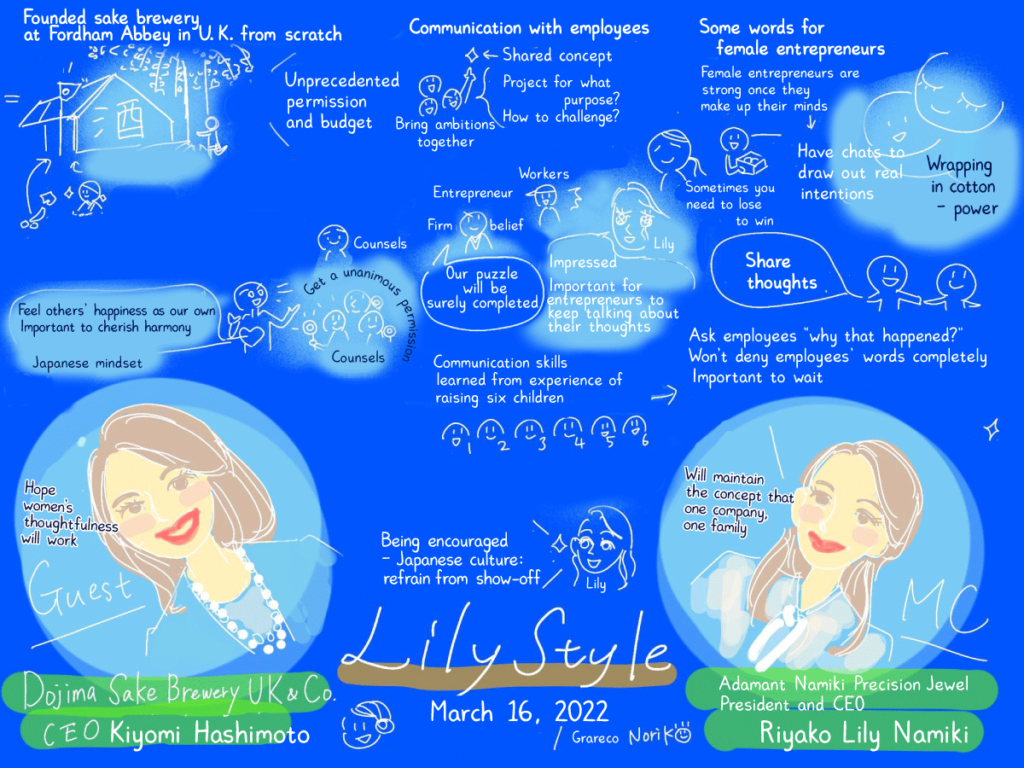 Founded sake brewery
at Fordham Abbey in U.K. from scratch
酒
Unprecedented
permission
and budget
Communication with employees
Shared concept
Project for what
purpose?
How to challenge?
Bring ambitions
together
Some words for
female entrepreneurs
Female entrepreneurs are
strong once they
make up their minds
Have chats to
draw out real
intentions
Sometimes you
need to lose
to win
Wrapping
in cotton
- power
Workers
Entrepreneur
Firm belief
Our puzzle
will be
surely completed
Lily
Impressed
Important for
entrepreneurs to
keep talking about
their thoughts
Share
thoughts
Ask employees "why that happened?"
Won't deny employees' words completely
Important to wait
Counsels
Get a unanimous permission
Counsels
Feel others' happiness as our own
Important to cherish harmony
Japanese mindset
Communication skills
learned from experience of
raising six children
1 2 3 4 5 6
Hope
women's
thoughtfulness
will work
Guest
Dojima Sake Brewery UK & Co.
CEO Kiyomi Hashimoto
Being encouraged
- Japanese culture:
refrain from show-off
Lily
Lily Style
March 16, 2022
/ Grareco Noriko
Will maintain
the concept that
one company,
one family
MC
Adamant Namiki Precision Jewel
President and CEO
Riyako Lily Namiki